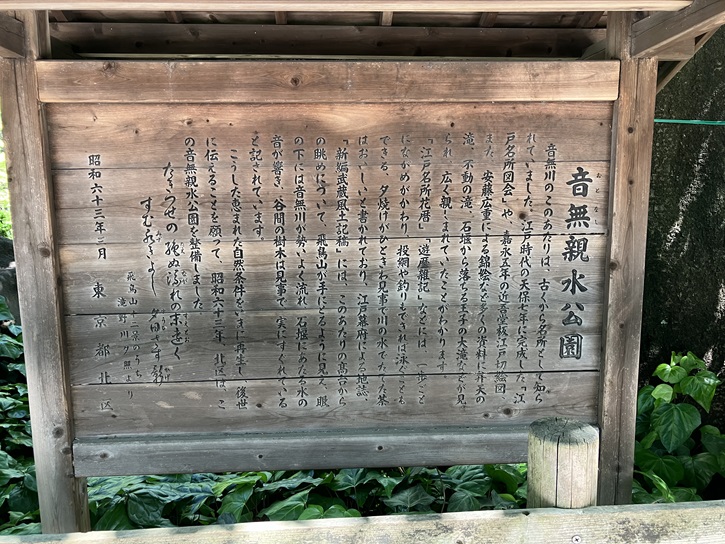 音無親水公園
おとなし
音無川のこのあたりは、古くから名所として知ら
れていました。江戸時代の天保七年に完成した『江
戸名所図会』や、嘉永五年の近吾堂板江戸切絵図、
また、安藤広重による錦絵など多くの資料に弁天の
滝、不動の滝、石堰から落ちる王子の大滝などが見
られ、広く親しまれていたことがわかります。
「江戸名所花暦」「遊歴雑記」などには、一歩ごと
にながめがかわり、投網や釣りもできれば泳ぐことも
できる、夕焼けがひときわ見事で川の水でたてた茶
はおいしいと書かれており、江戸幕府による地誌、
「新編武蔵風土記稿」には、このあたりの高台から
の眺めについて、飛鳥山が手にとるように見え、眼
の下には音無川が勢いよく流れ、石堰にあたる水の
音が響き、谷間の樹木は見事で、実にすぐれている
と記されています。
こうした恵まれた自然条件をいまに再生し、後世
に伝えることを願って、昭和六十三年、北区は、こ
の音無親水公園を整備しました。
たきつせの
すむ
飛鳥山十二景のうち
滝野川夕照より
昭和六十三年三月 東京都北区